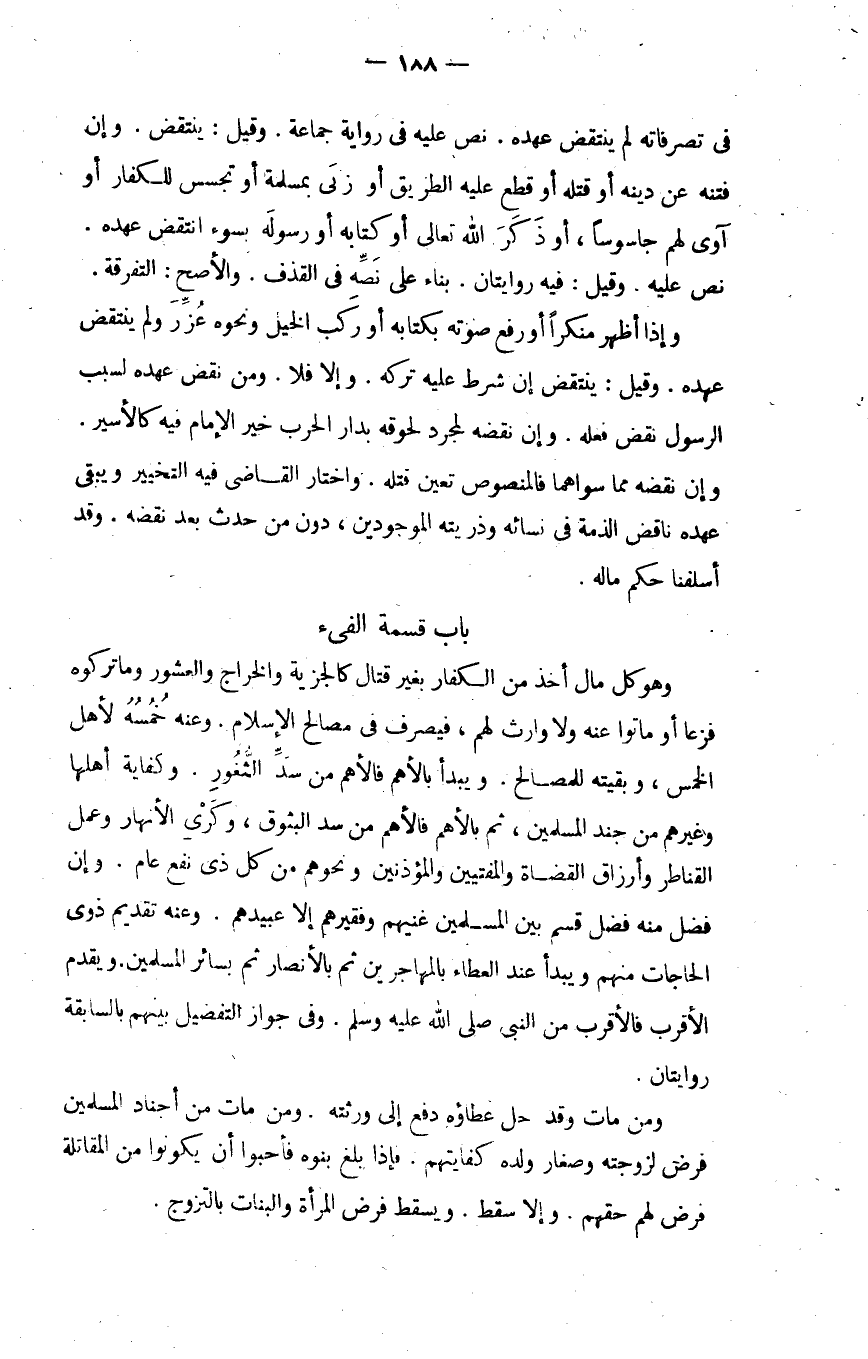 — ١٨٨ —
فى تصرفاته لم ينتقض عهده . نص عليه فى رواية جماعة . وقيل : ينتقض . وإن
فتنه عن دينه أو قتله أو قطع عليه الطريق أو زنَى بمسلمة أو تجسس للكفار أو
آوى لهم جاسوساً ، أو ذَكَرَ الله تعالى أو كتابه أو رسولَه بسوء انتقض عهده .
نص عليه . وقيل : فيه روايتان . بناء على نَصِّه فى القذف . والأصح : التفرقة .
وإذا أظهر منكراً أو رفع صوته بكتابه أو ركب الخيل ونحوه عُزِّرَ ولم ينتقض
عهده . وقيل : ينتقض إن شرط عليه تركه . وإلا فلا . ومن نقض عهده لسبب
الرسول نقض فعله . وإن نقضه لمجرد لحوقه بدار الحرب خير الإمام فيه كالأسير .
وإن نقضه مما سواهما فالمنصوص تعين قتله . واختار القاضى فيه التخيير ويبقى
عهده ناقض الذمة فى نسائه وذريته الموجودين ، دون من حدث بعد نقضه . وقد
أسلفنا حكم ماله .
باب قسمة الفىء
وهو كل مال أخذ من الكفار بغير قتال كالجزية والخراج والعشور وماتركوه
فزعا أو ماتوا عنه ولا وارث لهم ، فيصرف فى مصالح الإسلام . وعنه خُمُسُهُ لأهل
الخمس ، وبقيته للمصالح . ويبدأ بالأهم فالأهم من سَدِّ الثُّغُورِ . وكفاية أهلها
وغيرهم من جند المسلمين ، ثم بالأهم فالأهم من سد البثوق ، وكَرْىِ الأنهار وعمل
القناطر وأرزاق القضاة والمفتيين والمؤذنين ونحوهم من كل ذى نفع عام . وإن
فضل منه فضل قسم بين المسلمين غنيهم وفقيرهم إلا عبيدهم . وعنه تقديم ذوى
الحاجات منهم ويبدأ عند العطاء بالمهاجرين ثم بالأنصار ثم بسائر المسلمين. ويقدم
الأقرب فالأقرب من النبى صلى الله عليه وسلم . وفى جواز التفضيل بينهم بالسابقة
روايتان .
ومن مات وقد حل عطاؤه دفع إلى ورثته . ومن مات من أجناد المسلمين
فرض لزوجته وصغار ولده كفايتهم . فإذا بلغ بنوه فأحبوا أن يكونوا من المقاتلة
فرض لهم حقهم . وإلا سقط . ويسقط فرض المرأة والبنات بالتزوج .